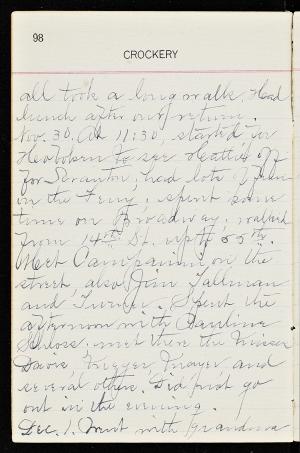 98
CROCKERY
all took a long walk, Had
lunch after our return.
Nov. 30. At 11:30, started for
Hoboken to see Hattie off
for Scranton, had lots of fun
on the Ferry, spent some
time on Broadway, walked
from 14th St. up to 35th.
Meet Campanini on the
street, also Jim Tallman
and Turner. Spent the
afternoon with Pauline
Schloss, met there the Misses
Davis, Mayer, and
several others. Did not go
out in the evening.
Dec. 1. Went with Grandma